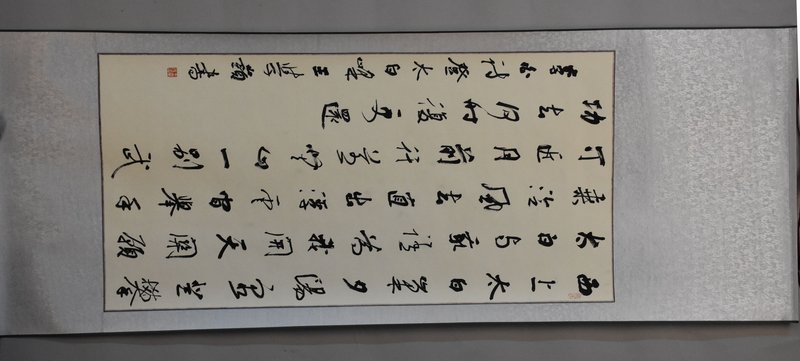 西上太白峯夕陽窮登攀
太白與我語為我開天關願
乘泠風去直出浮雲間舉手
可近月前行若無山一別武
功去何時復更還
李白詩登太白峰王翁書